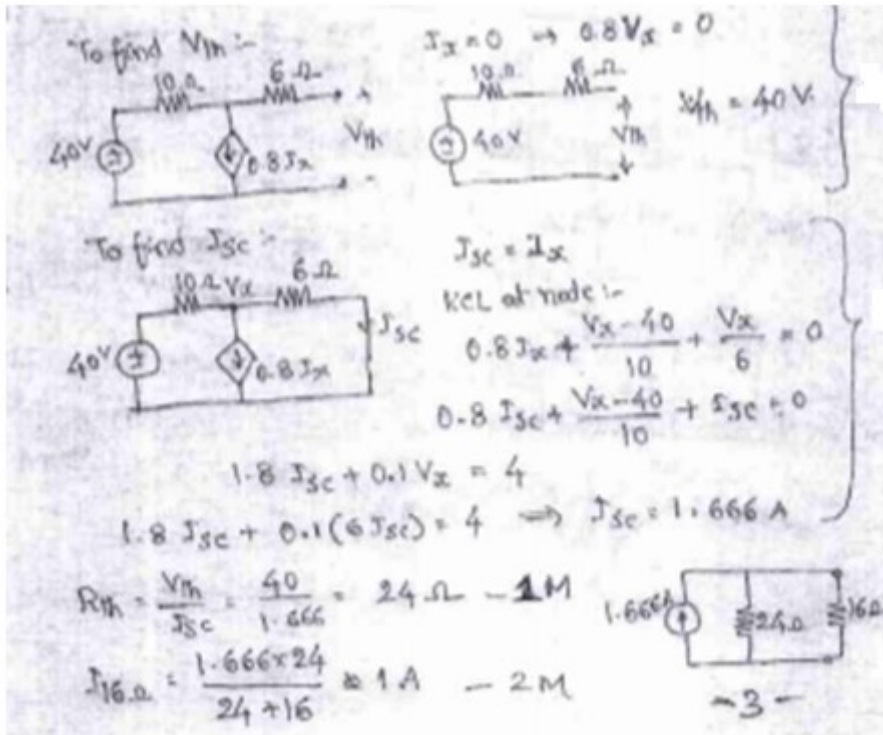 To find Vth :-
Ix = 0 → 0.8Vx = 0
10Ω 6Ω
40V 0.8Ix + Vth -
10Ω 6Ω
40V Vth
Vth = 40 V.
To find Isc :-
10Ω Vx 6Ω
40V 0.8Ix Isc
Isc = Ix
KCL at node :-
0.8 Ix + (Vx-40)/10 + Vx/6 = 0
0.8 Isc + (Vx-40)/10 + Isc = 0
1.8 Isc + 0.1 Vx = 4
1.8 Isc + 0.1(6 Isc) = 4 ⇒ Isc = 1.666 A
Rth = Vth/Isc = 40/1.666 = 24 Ω - 1M
1.666A 24Ω 16Ω
I16Ω = (1.666×24)/(24+16) = 1 A - 2M
-3-